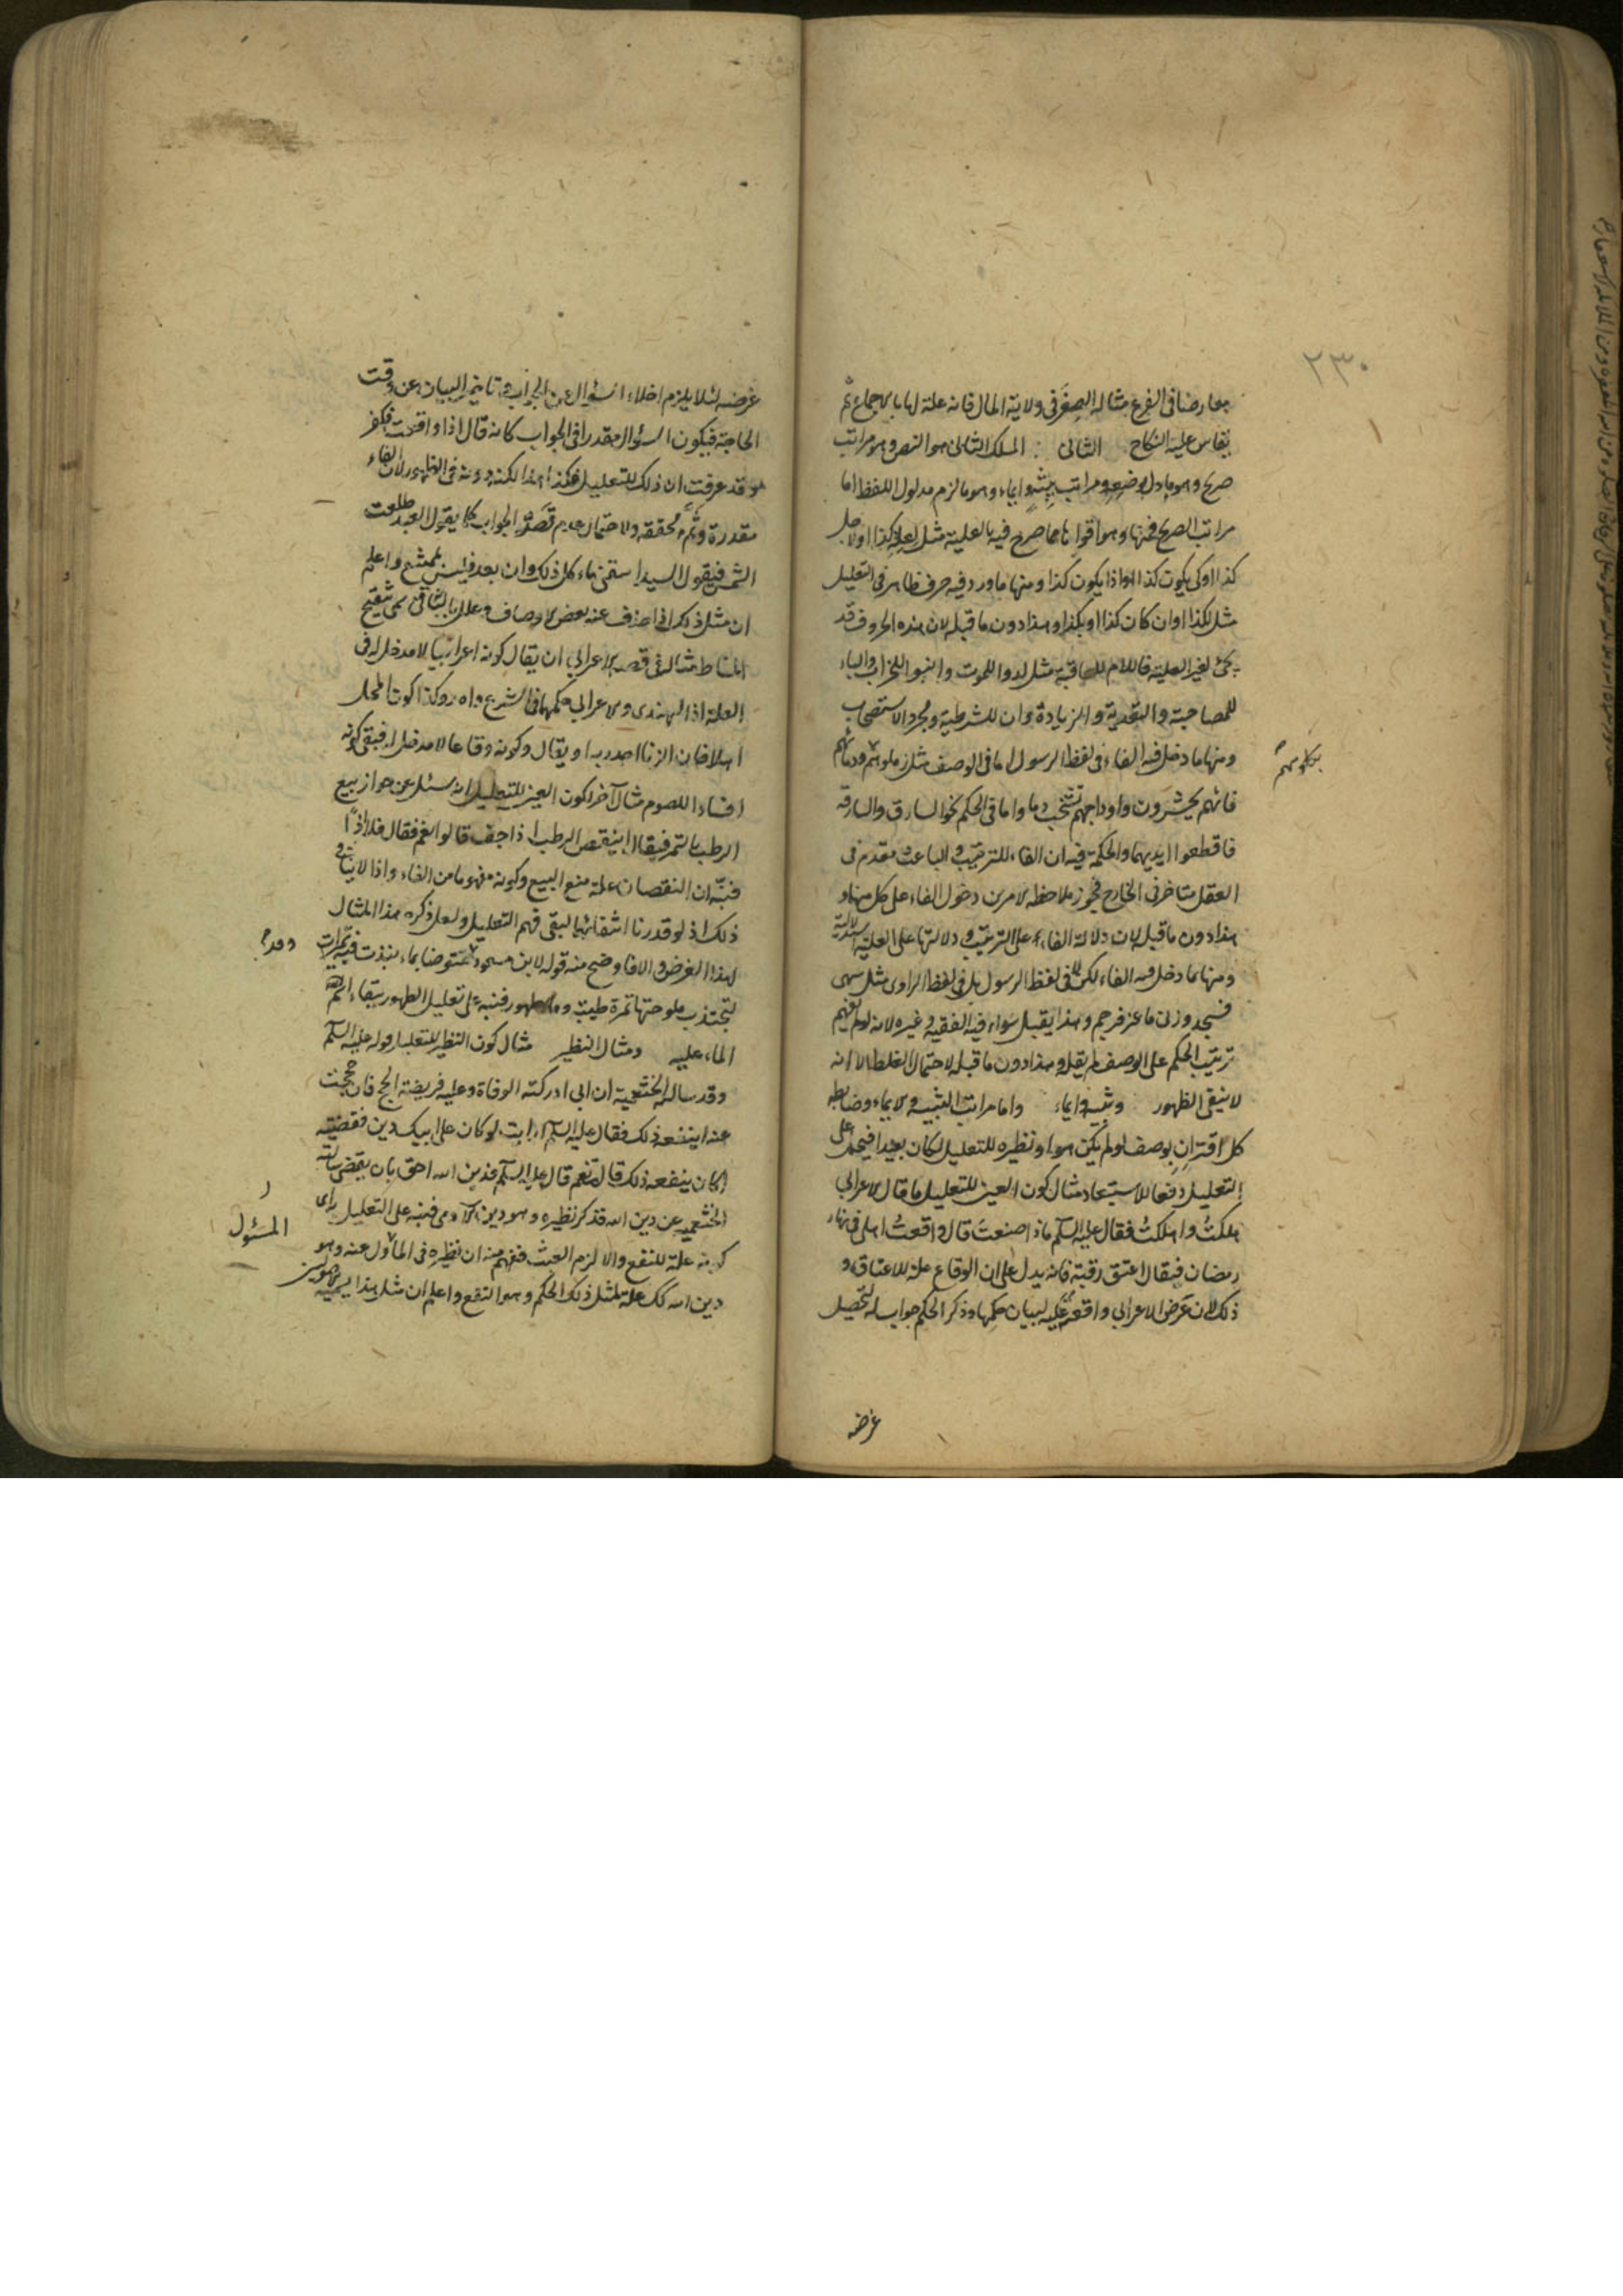 ٢٣٠
معارضا في الفرع مثاله الصغر في ولاية المال فانه علة لها بالاجماع ثم
يقاس عليه النكاح الثاني المسلك الثاني هو النص وهو مراتب
صريح وهو ما دل بوضعه ومراتب تنبيه وايماء وهو ما لزم مدلول اللفظ اما
مراتب الصريح فمنها وهو اقواها ما صرح فيه بالعلية مثل لعلة كذا او لاجل
كذا او كي يكون كذا او اذا يكون كذا ومنها ما ورد فيه حرف ظاهر في التعليل
مثل لكذا او ان كان كذا او بكذا وهذا دون ما قبله لان هذه الحروف قد
يجئ لغير العلية فاللام للعاقبة مثل لدوا للموت وابنوا للخراب والباء
للمصاحبة والتعدية والزيادة وان للشرطية ومجرد الاستصحاب
ومنها ما دخل فيه الفاء في لفظ الرسول اما في الوصف مثل زملوهم ودمائهم
بكلومهم
فانهم يحشرون واوداجهم تشخب دما واما في الحكم نحو السارق والسارقة
فاقطعوا ايديهما والحكمة فيه ان الفاء للترتيب والباعث مقدم في
العقل متاخر في الخارج فيجوز ملاحظة الامرين دخول الفاء على كل منهما و
هذا دون ما قبله لان دلالة الفاء على الترتيب ودلالتها على العلية استدلالية
ومنها ما دخل فيه الفاء لكن لا في لفظ الرسول بل في لفظ الراوي مثل سهى
فسجد وزنى ماعز فرجم وهذا يقبل سواء فيه الفقيه وغيره لانه لو لم يفهم
ترتيب الحكم على الوصف لم يقله وهذا دون ما قبله لاحتمال الغلط الا انه
لا ينفي الظهور وتنبيه وايماء واما مراتب التنبيه والايماء وضابطه
كل اقتران بوصف لو لم يكن هو او نظيره للتعليل لكان بعيدا فيحمل على
التعليل دفعا للاستبعاد مثال كون العين للتعليل ما قال الاعرابي
هلكت واهلكت فقال عليه السلم ماذا صنعت قال واقعت اهلي في نهار
رمضان فقال اعتق رقبة فانه يدل على ان الوقاع علة للاعتاق و
ذلك لان غرض الاعرابي واقعته عليه لبيان حكمها وذكر الحكم جواب له لتحصيل
غرضه
غرضه لئلا يلزم اخلاء السؤال عن الجواب وتاخير البيان عن وقت
الحاجة فيكون السؤال مقدرا في الجواب كانه قال اذا واقعت فكفر
وقد عرفت ان ذلك للتعليل فكذا هذا لكنه دونه في الظهور لان الفاء
مقدرة وثم محققة ولاحتمال عدم قصد الجواب كما يقول العبد طلعت
الشمس فيقول السيد اسقني ماء كل ذلك وان بعد فليس بممتنع واعلم
ان مثل ذلك اذا حذف عنه بعض الاوصاف وعلل بالباقي سمي تنقيح
المناط مثاله في قصة الاعرابي ان يقال كونه اعرابيا لا مدخل له في
العلة اذ الهندي والاعرابي حكمهما في الشرع واحد وكذا كون المحل
اهلا فان الزنا اجدر به او يقال وكونه وقاعا لا مدخل له فبقي كونه
افسادا للصوم مثال آخر لكون العين للتعليل انه سئل عن جواز بيع
الرطب بالتمر فقال اينقص الرطب اذا جف قالوا نعم فقال فلا اذا
فنبه ان النقصان علة منع البيع وكونه مفهوما من الفاء واذا لا ينافي
ذلك اذ لو قدرنا انتفائهما لبقي فهم التعليل ولعل ذكره هذا المثال
لهذا الغرض والا فاوضح منه قوله لابن مسعود توضا بماء نبذت فيه تميرات
لتجتذب ملوحتها تمرة طيبة وماء طهور فنبه على تعليل الطهور ببقاء اسم
الماء عليه ومثال النظير مثال كون النظير للتعليل قوله عليه السلم
وقد سالته الخثعمية ان ابي ادركته الوفاة وعليه فريضة الحج فان حججت
عنه اينفعه ذلك فقال عليه السلم ارايت لو كان على ابيك دين فقضيته
اكان ينفعه ذلك قالت نعم قال عليه السلم فدين الله احق بان يقضى سالته
الخثعمية عن دين الله فذكر نظيره وهو دين الآدمي فنبه على التعليل به اي
كونه علة للنفع والا لزم العبث ففهم منه ان نظيره في المسئول عنه وهو
المسئول
دين الله كك علة لمثل ذلك الحكم وهو النفع واعلم ان مثل هذا يسميه الاصوليون